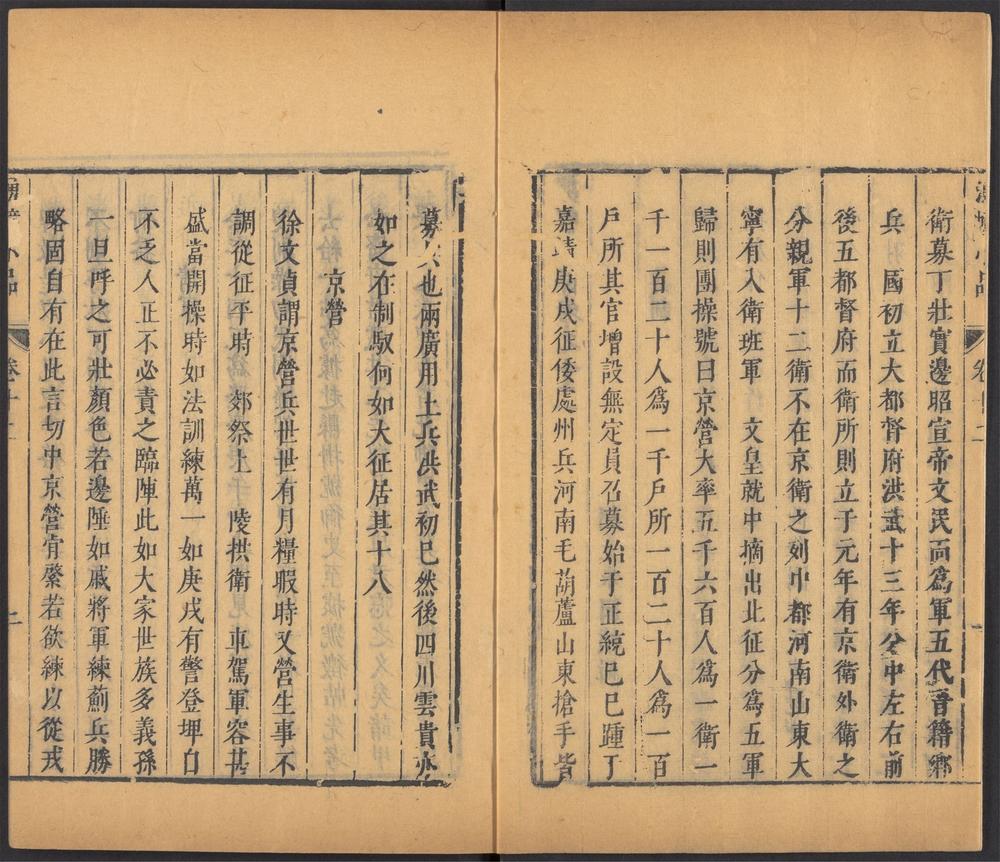 湧幢小品
卷十二
一
衛募丁壯實邊昭宣帝文民面爲軍五代晉籍鄉
兵　國初立大都督府洪武十三年分中左右前
後五都督府而衛所則立于元年有京衛外衛之
分親軍十二衛不在京衛之列中都河南山東大
寧有入衛班軍　文皇就中摘出北征分爲五軍
歸則團操號曰京營大率五千六百人爲一衛一
千一百二十人爲一千戶所一百二十人爲一百
戶所其官增設無定員召募始于正統己巳踵于
嘉靖庚戌征倭處州兵河南毛葫蘆山東搶手皆
募人也兩廣用土兵洪武初巳然後四川雲貴亦
如之在制馭何如大征居其十八
京營
徐文貞謂京營兵世世有月糧暇時又營生事不
調從征平時　郊祭上　陵拱衛　車駕軍容甚
盛當開操時如法訓練萬一如庚戌有警登埤自
不乏人正不必責之臨陣此如大家世族多義孫
一旦呼之可壯顏色若邊陲如戚將軍練薊兵勝
略固自有在此言切中京營肯綮若欲練以從戎
湧幢小品
卷十二
二